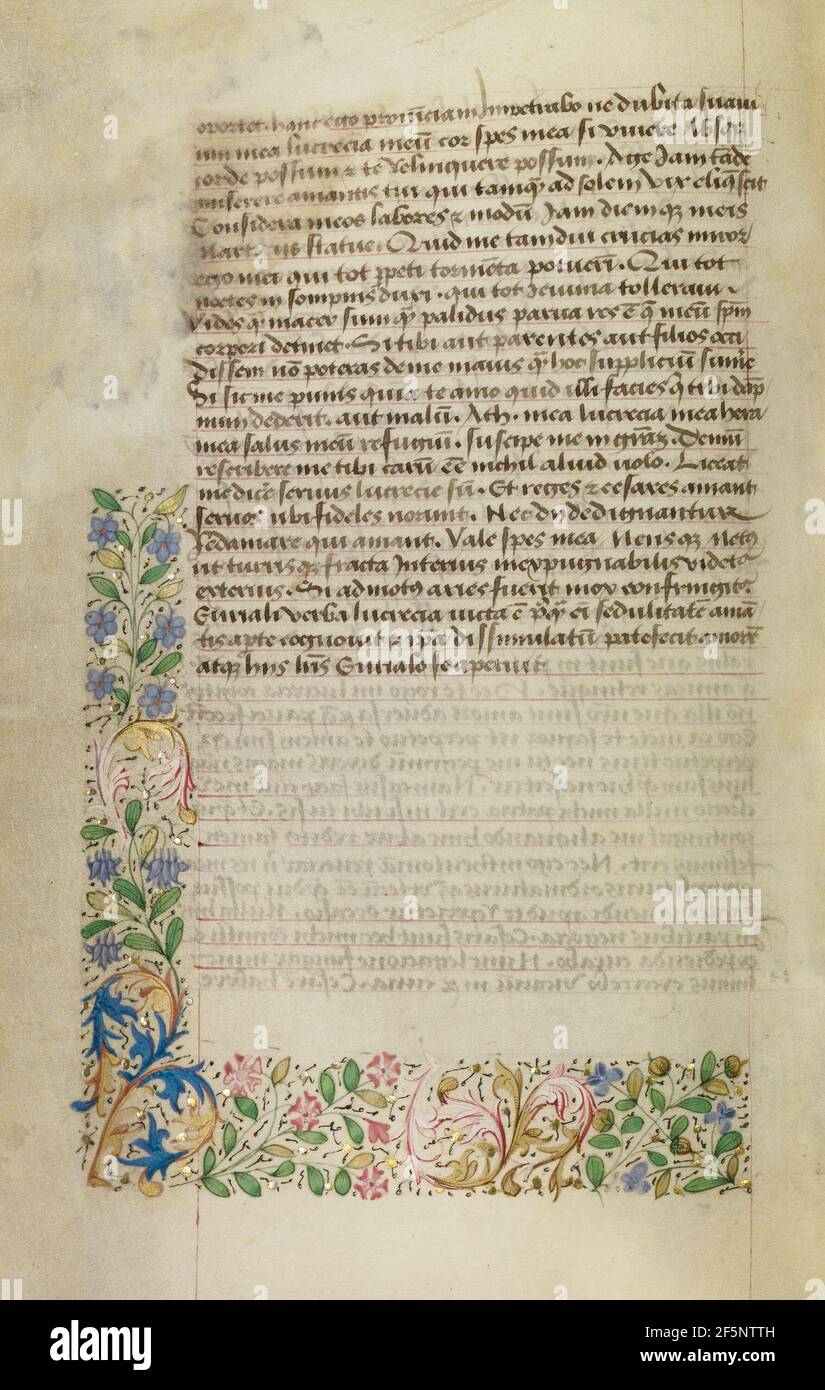 oportet. hanc ego provinciam Impetrabo ne dubita suaui
um mea lucrecia meū cor spes mea si viuere absq3
corde possum & te relinquere possum. Age Iam tāde
miserere amantis tui qui tamq̄ ad solem vix eliq̄scit
Considera meos labores & modū Iam diemq3 meis
statue. Quid me tamdiu crucias miror
ego mei qui tot ꝑpeti tormēta potueri. Qui tot
noctes in sompnis duxi. qui tot Ieiunia tolleraui.
Vides q̄ macer sum q̄ palidus parua res ē q̄ meū spm̄
corpori detinet. Si tibi aut parentes aut filios occi
dissem nō poteras de me maius q̄ hoc suppliciū sumēe
Si sic me punis quia te amo quid illi facies q̄ tibi dāp
num dederit. aut malū. Ath. mea lucrecia mea hera
mea salus meū refugiū. suscipe me in grāz. Demū
rescribere me tibi carū ēē nichil aliud uolo. Liceat
me dicēe seruus lucrecie sū. Et reges & cesares amant
seruos ubi fideles norunt. Nec dy dedignantur
redamare qui amant. Vale spes mea meusq3 metꝰ
ut turrisq3 fracta Interius inexpugnabilis videtᵉ
exterius. Si admotꝰ aries fuerit mox confringitᵉ
Euriali verba lucrecia uicta ē ei sedulitatē amā
tis apte cognouit & ip̄a dissimulatū patefecit amorē
atq3 hijs lrīs Eurialo se aperuit
alamy
Image ID: 2F5NTTH
www.alamy.com